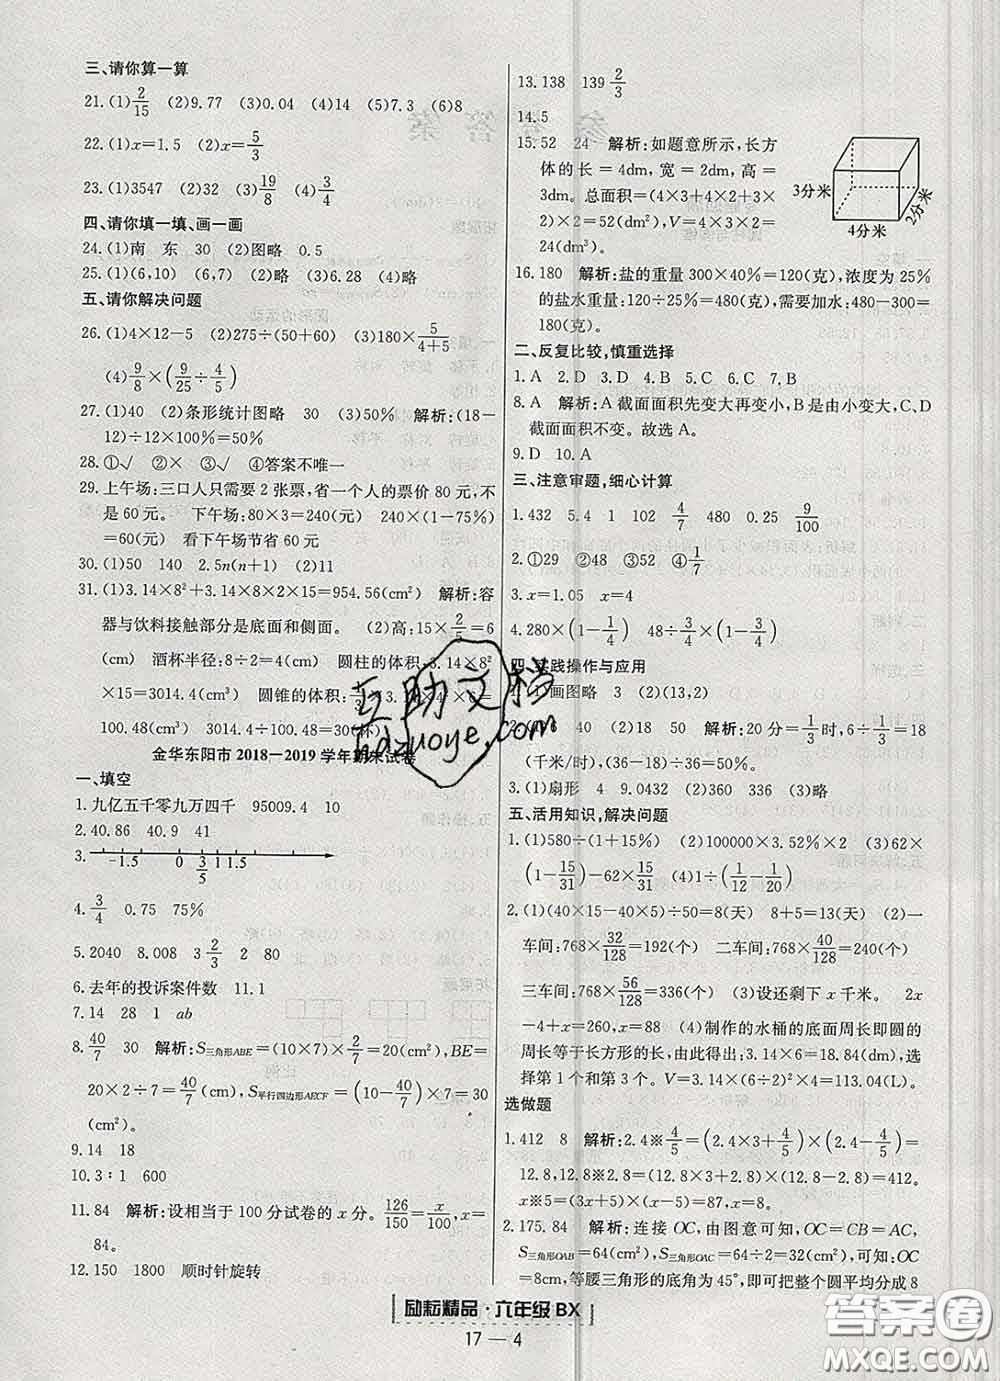 三、请你算一算
21.(1)2/15 (2)9.77 (3)0.04 (4)14 (5)7.3 (6)8
22.(1)x=1.5 (2)x=5/3
23.(1)3547 (2)32 (3)19/8 (4)3/4
四、请你填一填、画一画
24.(1)南 东 30 (2)图略 0.5
25.(1)(6,10) (6,7) (2)略 (3)6.28 (4)略
五、请你解决问题
26.(1)4×12-5 (2)275÷(50+60) (3)180×5/(4+5)
(4)9/8×(9/25÷4/5)
27.(1)40 (2)条形统计图略 30 (3)50% 解析:(18-
12)÷12×100%=50%
28.①√ ②× ③√ ④答案不唯一
29.上午场:三口人只需要 2 张票,省一个人的票价 80 元,不
是 60 元。 下午场:80×3=240(元) 240×(1-75%)
=60(元) 看下午场节省 60 元
30.(1)50 140 2.5n(n+1) (2)11
31.(1)3.14×8²+3.14×8×2×15=954.56(cm²) 解析:容
器与饮料接触部分是底面和侧面。 (2)高:15×2/5=6
(cm) 酒杯半径:8÷2=4(cm) 圆柱的体积:3.14×8²
×15=3014.4(cm³) 圆锥的体积:1/3×3.14×4²×6=
100.48(cm³) 3014.4÷100.48=30(杯)
金华东阳市 2018—2019 学年期末试卷
一、填空
1.九亿五千零九万四千 95009.4 10
2.40.86 40.9 41
3. -1.5 0 3/5 1 1.5
4.3/4 0.75 75%
5.2040 8.008 3 2/3 2 80
6.去年的投诉案件数 11.1
7.14 28 1 ab
8.40/7 30 解析:S三角形ABE=(10×7)×2/7=20(cm²),BE=
20×2÷7=40/7(cm),S平行四边形AECF=(10-40/7)×7=30
(cm²)。
9.14 18
10.3∶1 600
11.84 解析:设相当于 100 分试卷的 x 分。126/150=x/100,x=
84。
12.150 1800 顺时针旋转
13.138 139 2/3
14.5
15.52 24 解析:如题意所示,长方
体的长=4dm,宽=2dm,高=
3dm。总面积=(4×3+4×2+3×
2)×2=52(dm²),V=4×3×2=
24(dm³)
3分米
4分米
2分米
16.180 解析:盐的重量 300×40%=120(克),浓度为 25%
的盐水重量:120÷25%=480(克),需要加水:480-300=
180(克)。
二、反复比较,慎重选择
1.A 2.D 3.A 4.B 5.C 6.C 7.B
8.A 解析:A 截面面积先变大再变小,B 是由小变大,C、D
截面面积不变。故选 A。
9.D 10.A
三、注意审题,细心计算
1.432 5.4 1 102 4/7 480 0.25 9/100
2.①29 ②48 ③52 ④1/7
3.x=1.05 x=4
4.280×(1-1/4) 48÷3/4×(1-3/4)
四、实践操作与应用
1.(1)画图略 3 (2)(13,2)
40 (2)20 50 解析:20 分=1/3时,6÷1/3=18
(千米/时)
3.(1)扇形 4 9.0432 (2)360 336 (3)略
五、活用知识,解决问题
1.(1)580÷(1+15%) (2)100000×3.52%×2 (3)62×
(1-15/31)-62×15/31 (4)1÷(1/12-1/20)
2.(1)(40×15-40×5)÷50=8(天) 8+5=13(天) (2)一
车间:768×32/128=192(个) 二车间:768×40/128=240(个)
三车间:768×56/128=336(个) (3)设还剩下 x 千米。 2x
-4+x=260,x=88 (4)制作的水桶的底面周长即圆的
周长等于长方形的长,由此得出:3.14×6=18.84(dm),选
择第 1 个和第 3 个。V=3.14×(6÷2)²×4=113.04(L)
选做题
1.412 8 解析:2.4※4/5=(2.4×3+4/5)×(2.4-4/5)=
12.8,12.8※2.8=(12.8×3+2.8)×(12.8-2.8)=412,
x※5=(3x+5)×(x-5)=87,x=8。
2.175.84 解析:连接 OC,由图意可知:OC=CB=AC,
S三角形OAB=64(cm²),S三角形OAC=64÷2=32(cm²),可知:OC
=8cm,等腰三角形的底角为 45°,即可把整个圆平均分成 8
励耘精品·六年级 BX
17—4
互助文档
hdzuoye.com
答案圈
MXQE.COM